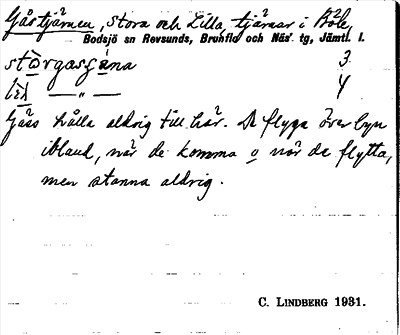 Gåstjärnen, Stora och Lilla, tjärnar i Böle,
Bodsjö sn Revsunds, Brunflo och Näs' tg, Jämtl. l.
stòrgasęana 3
lìl —"— 4
Gäss hålla aldrig till här. De flyga över byn
ibland, när de komma o när de flytta,
men stanna aldrig.
C. LINDBERG 1931.